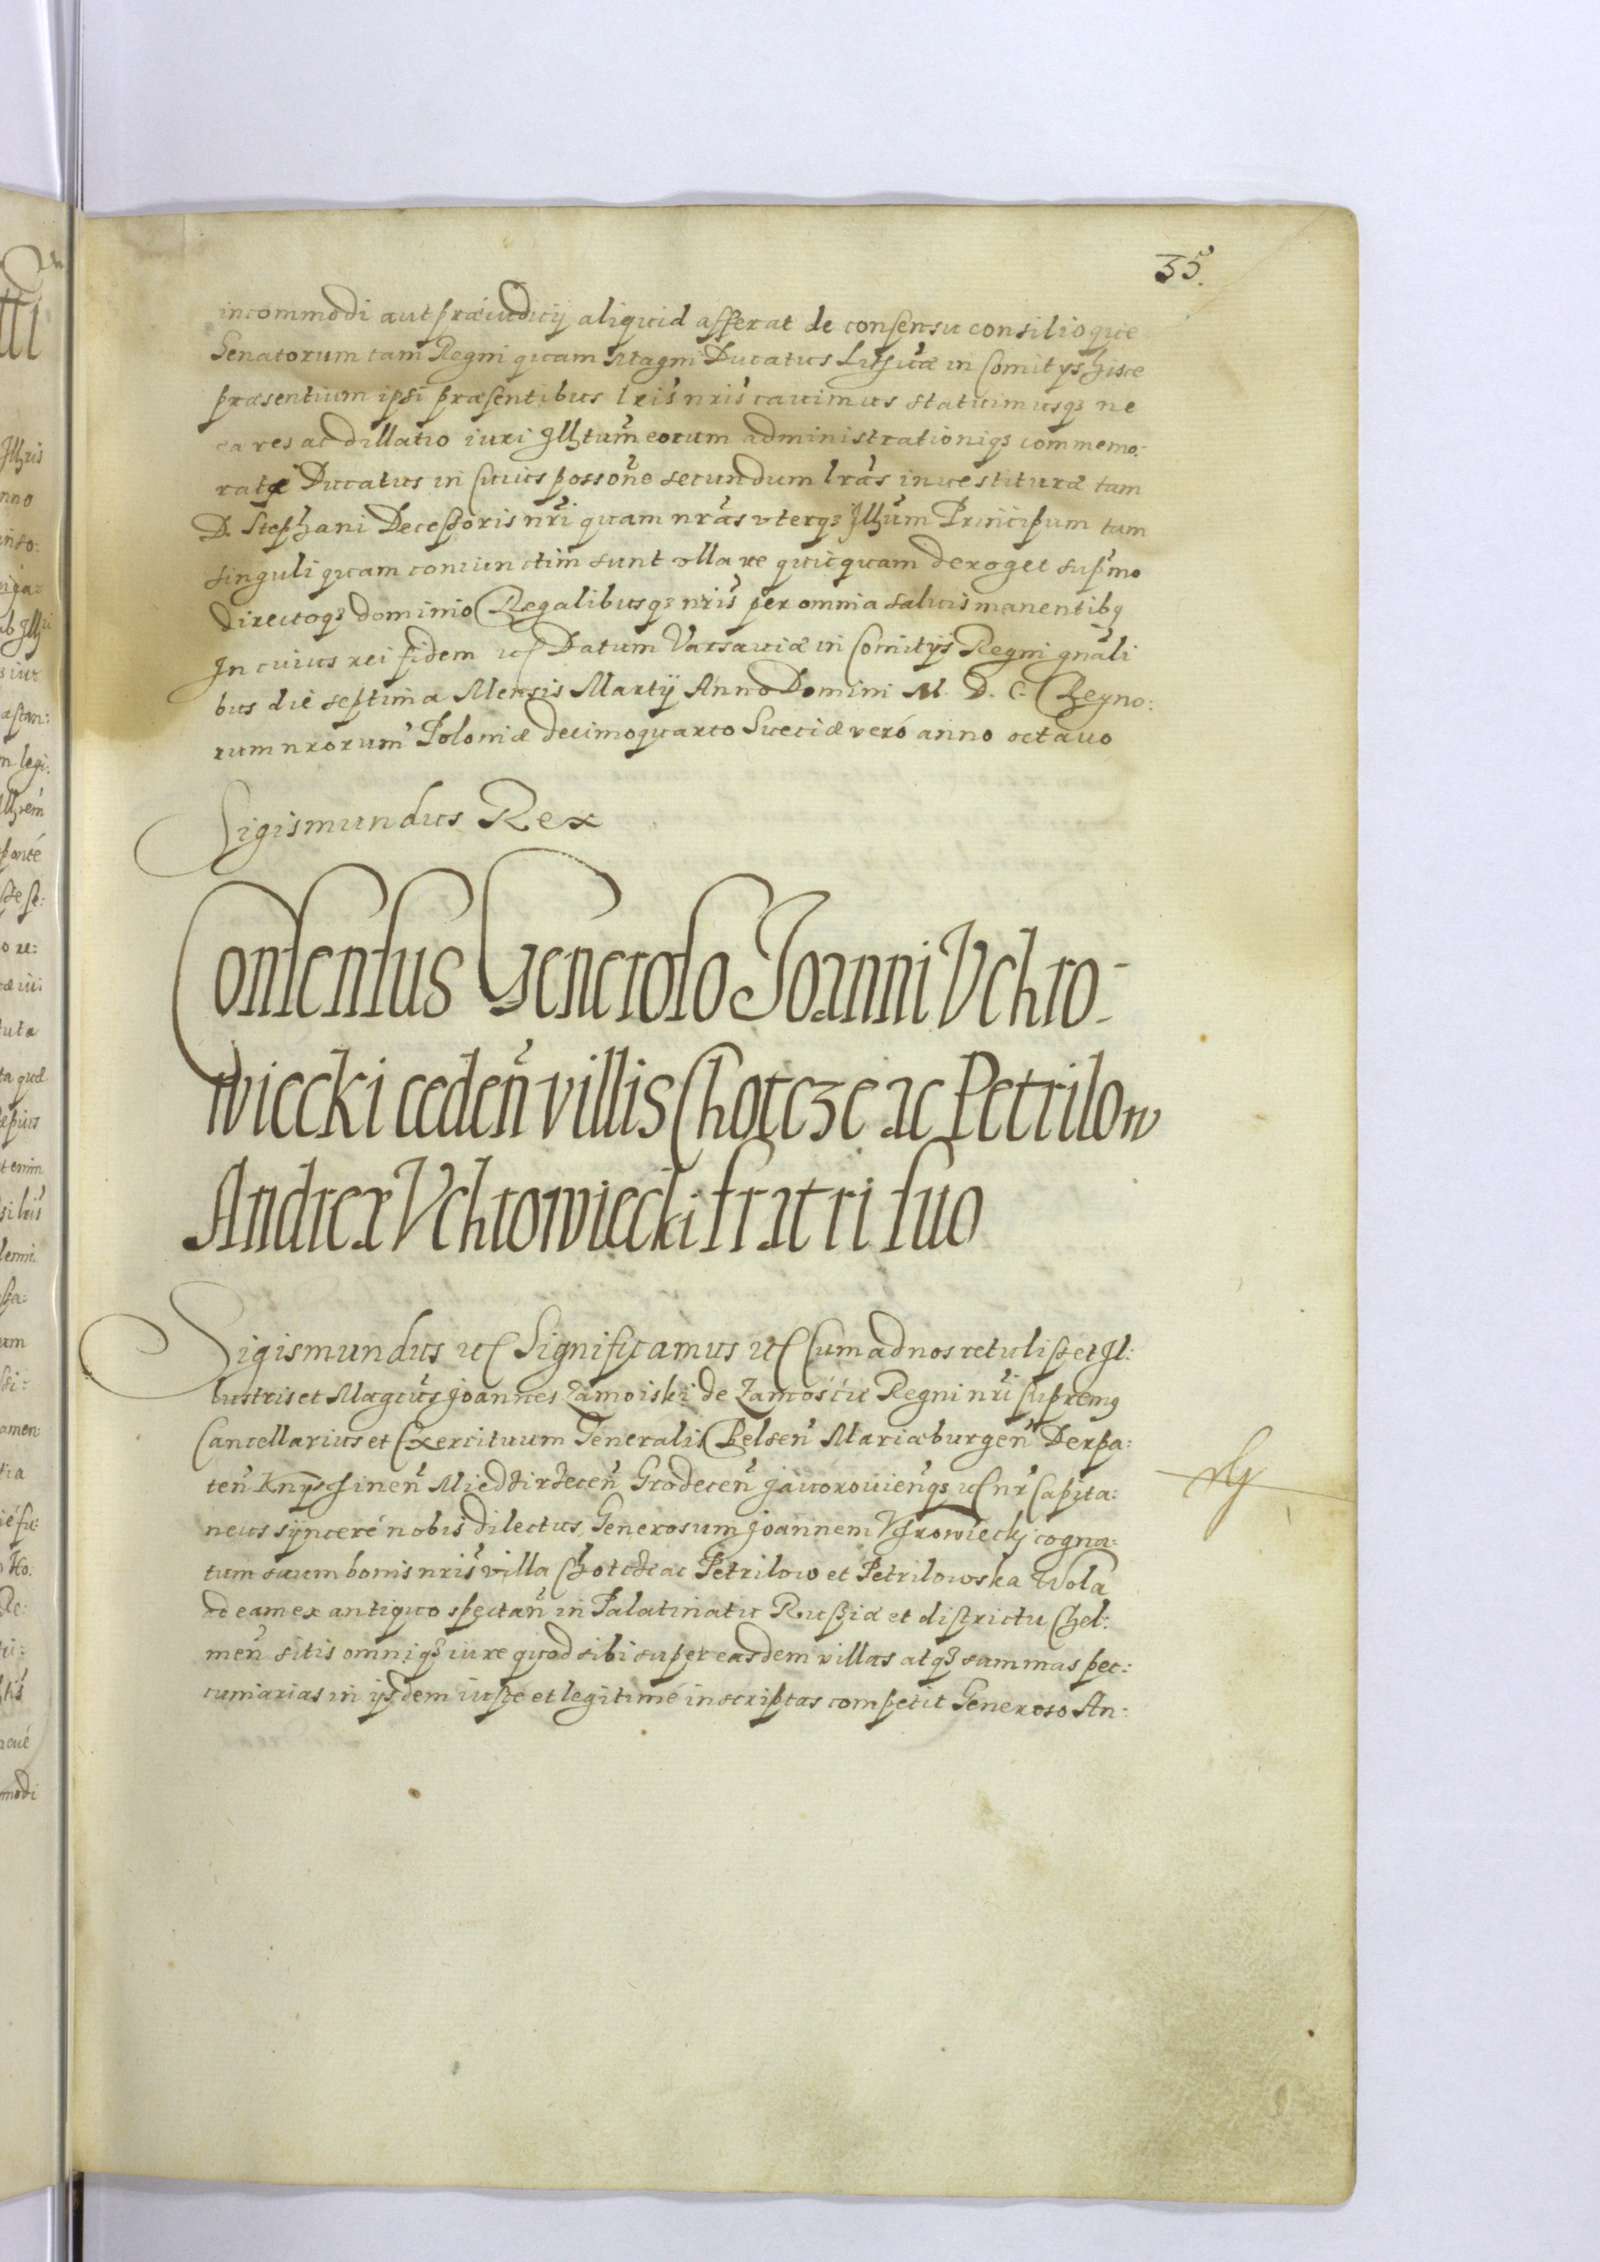 35.
incommodi aut præiudicij aliquid afferat de consensu consilioque
Senatorum tam Regni quam Magni Ducatus Lithuæ in Comitijs hisce
præsentium ipsi præsentibus lris nris cauimus statuimusq3 ne
ea res ac dillatio iuri Illtum eorum administrationiq3 commemo:
ratæ Ducatus in Cuius possone secundum lras inuestituræ tam
D. Stephani Decessoris nri quam nras vterq3 Illum Principum tam
singuli quam coniunctim sunt vlla re quicquam deroget supmo
directoq3 dominio Regalibusq3 nris per omnia saluis manentibq
In cuius rei fidem uc Datum Varsauiæ in Comitijs Regni gnali
bus die septima Mensis Martij Anno Domini M. D. C. Regno:
rum nrorum Poloniæ decimoquarto Sueciæ veró anno octauo
Sigismundus Rex
Consensus Generoso Joanni Vchro-
wiecki ceden villis Chotcze ac Petrilow
Andreæ Vchrowiecki fratri suo
Sigismundus uc Significamus uc Cum ad nos retulisset Il:
lustris et Magcus Joannes Zamoiski de Zamoscie Regni nri supremq
Cancellarius et Exercituum Generalis Belsen Mariæburgen Derpa:
ten Knyschinen Miedzirzecen Grodecen Jauorouienq3 uc nr Capita:
neus synceré nobis dilectus, Generosum Joannem Vhrowiecki cogna:
tum suum bonis nris villa Chotcze ac Petrilow et Petrilowska Wola
ad eam ex antiquo spectan in Palatinatu Russiæ et districtu Chel:
men sitis omniq3 iure quod sibi super easdem villas atq3 summas pec:
cuniarias in ijsdem iuste et legitimé inscriptas competit Generoso An: